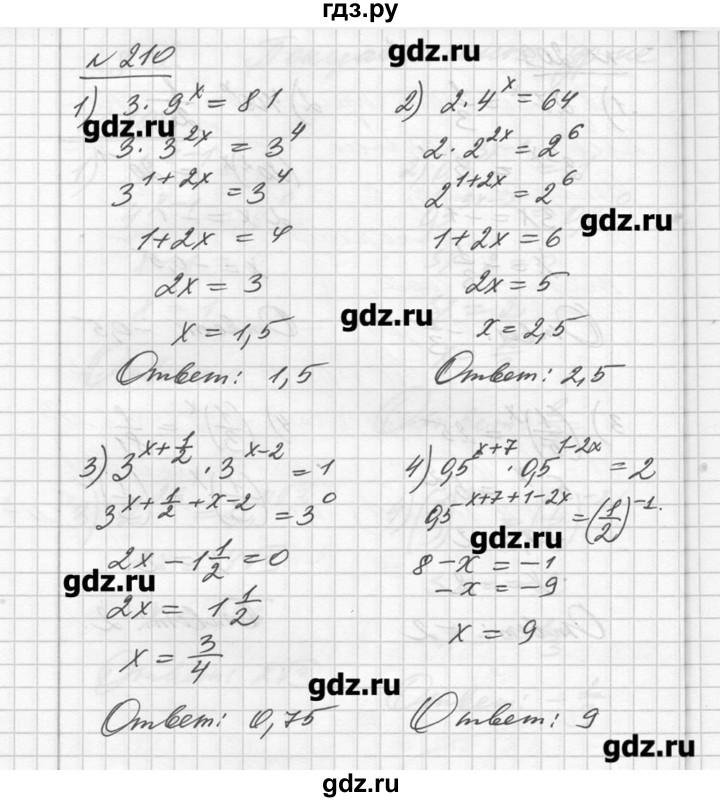 гдз.ру
gdz.ru
№ 210
1) 3 · 9^x = 81
gdz.ru
3 · 3^{2x} = 3^4
3^{1+2x} = 3^4
1+2x = 4
2x = 3
x = 1,5
Ответ: 1,5
2) 2 · 4^x = 64
2 · 2^{2x} = 2^6
2^{1+2x} = 2^6
gdz.ru
1+2x = 6
2x = 5
gdz.ru
x = 2,5
Ответ: 2,5
3) 3^{x+\frac{1}{2}} · 3^{x-2} = 1
3^{x+\frac{1}{2}+x-2} = 3^0
2x - 1\frac{1}{2} = 0
gdz.ru
2x = 1\frac{1}{2}
x = \frac{3}{4}
gdz.ru
Ответ: 0,75
4) 0,5^{x+7} · 0,5^{1-2x} = 2
0,5^{x+7+1-2x} = (\frac{1}{2})^{-1}.
gdz.ru
8 - x = -1
-x = -9
x = 9
Ответ: 9
gdz.ru
gdz.ru